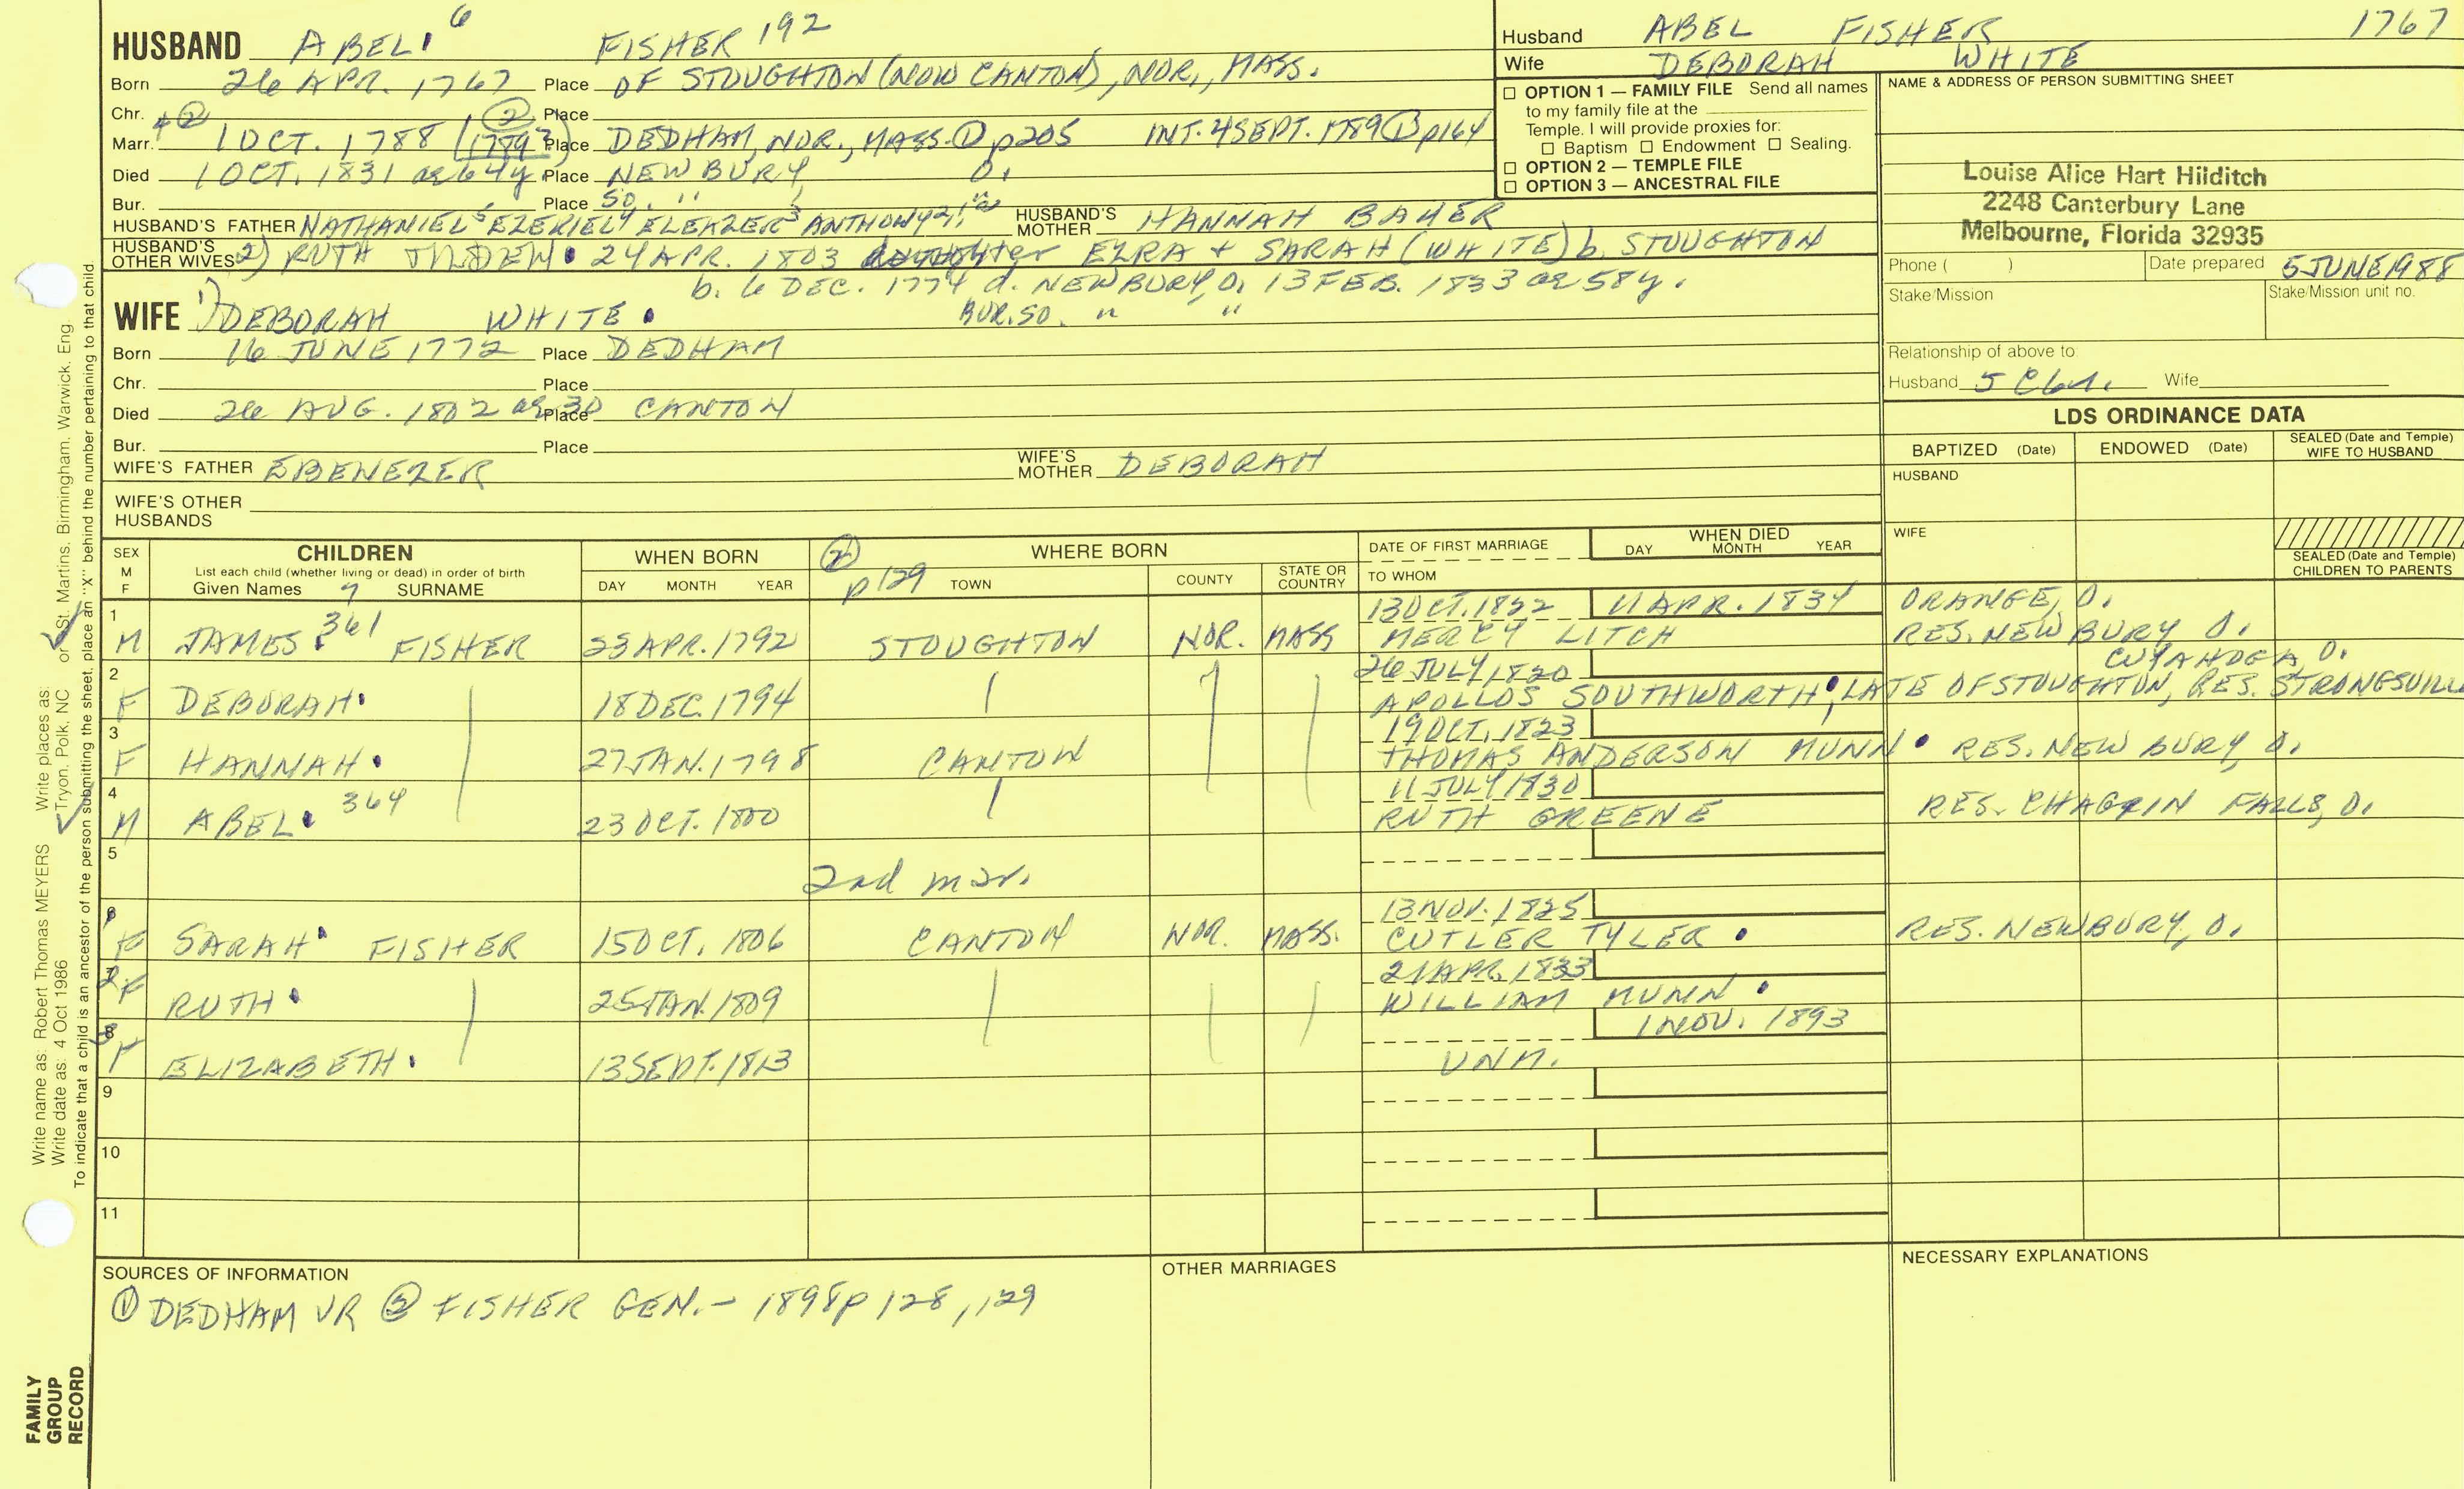 HUSBAND ABEL 6 FISHER 192
Born 26 APR. 1767 Place OF STOUGHTON (NOW CANTON), NOR., MASS.
Chr. Place
Marr. 1 OCT. 1788 (1789?) ② Place DEDHAM, NOR., MASS. ① p205 INT. 4 SEPT. 1789 ① p164
Died 1 OCT. 1831 ae 64y Place NEWBURY, O.
Bur. Place SO. " "
HUSBAND'S FATHER NATHANIEL 5 EZEKIEL 4 ELEAZER 3 ANTHONY 2,1
HUSBAND'S MOTHER HANNAH BAKER
HUSBAND'S OTHER WIVES 2) RUTH 24 APR. 1803 daughter EZRA + SARAH (WHITE) b. STOUGHTON
b. 6 DEC. 1774 d. NEWBURY, O. 13 FEB. 1833 ae 58y.
BUR. SO. " "
WIFE 1) DEBORAH WHITE
Born 16 JUNE 1772 Place DEDHAM
Chr. Place
Died 26 AUG. 1802 ae 30 Place CANTON
Bur. Place
WIFE'S FATHER EBENEZER
WIFE'S MOTHER DEBORAH
WIFE'S OTHER HUSBANDS
Husband ABEL FISHER 1767
Wife DEBORAH WHITE
☐ OPTION 1 — FAMILY FILE Send all names
to my family file at the
Temple. I will provide proxies for:
☐ Baptism ☐ Endowment ☐ Sealing.
☐ OPTION 2 — TEMPLE FILE
☐ OPTION 3 — ANCESTRAL FILE
NAME & ADDRESS OF PERSON SUBMITTING SHEET
Louise Alice Hart Hilditch
2248 Canterbury Lane
Melbourne, Florida 32935
Phone ( ) Date prepared 5 JUNE 1988
Stake/Mission Stake/Mission unit no.
Relationship of above to
Husband 5 C Wife
LDS ORDINANCE DATA
BAPTIZED (Date) ENDOWED (Date) SEALED (Date and Temple) WIFE TO HUSBAND
HUSBAND
WIFE
SEALED (Date and Temple) CHILDREN TO PARENTS
SEX M F
CHILDREN
List each child (whether living or dead) in order of birth
Given Names 7 SURNAME
WHEN BORN
DAY MONTH YEAR
② p 129
WHERE BORN
TOWN COUNTY STATE OR COUNTRY
DATE OF FIRST MARRIAGE
TO WHOM
WHEN DIED
DAY MONTH YEAR
1 M JAMES 361 FISHER 23 APR. 1792 STOUGHTON NOR. MASS 13 OCT. 1822 MERCY LITCH 11 APR. 1834 ORANGE, O.
RES. NEWBURY O.
2 F DEBORAH 18 DEC. 1794 26 JULY 1820 APOLLOS SOUTHWORTH, LATE OF STOUGHTON, RES. STRONGSVILLE
CUYAHOGA, O.
3 F HANNAH 27 JAN. 1798 CANTON 19 OCT. 1823 THOMAS ANDERSON MUNN RES. NEWBURY, O.
4 M ABEL 364 23 OCT. 1800 11 JULY 1830 RUTH GREENE RES. CHAGRIN FALLS, O.
5
2nd mar.
6 1 F SARAH FISHER 15 OCT. 1806 CANTON NOR. MASS. 13 NOV. 1825 CUTLER TYLER RES. NEWBURY, O.
7 2 F RUTH 25 JAN. 1809 21 APR. 1833 WILLIAM MUNN
8 3 F ELIZABETH 13 SEPT. 1813 UNM. 1 NOV. 1893
9
10
11
SOURCES OF INFORMATION
① DEDHAM VR ② FISHER GEN. - 1898 p 128, 129
OTHER MARRIAGES
NECESSARY EXPLANATIONS
Write name as: Robert Thomas MEYERS Write places as: or St. Martins, Birmingham, Warwick, Eng.
Write date as: 4 Oct 1986 Tryon, Polk, NC
To indicate that a child is an ancestor of the person submitting the sheet, place an "X" behind the number pertaining to that child.
FAMILY
GROUP
RECORD